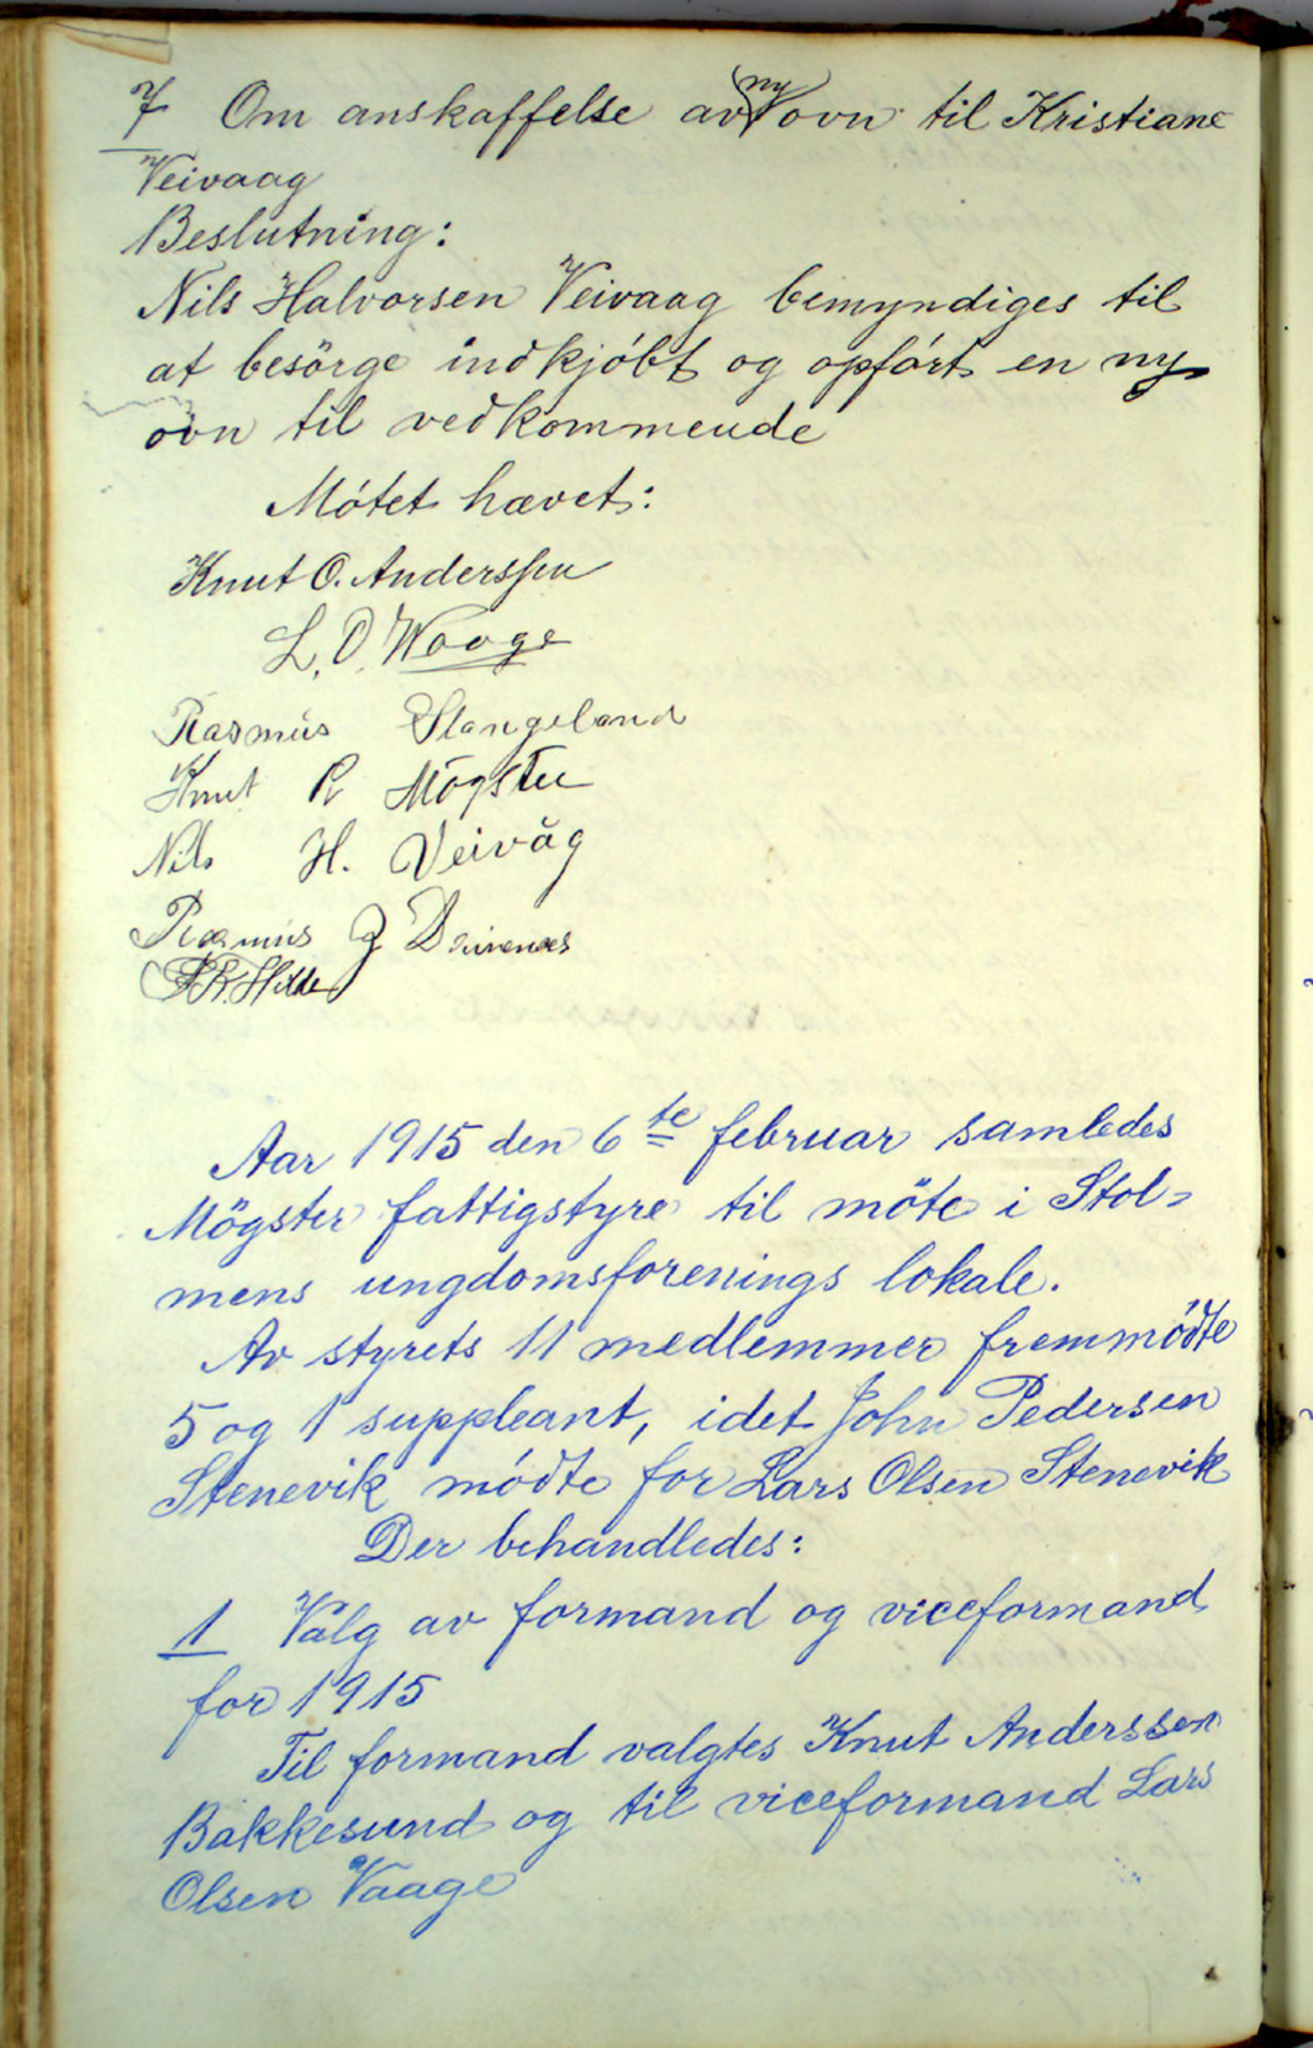 7 Om anskaffelse av ny ovn til Kristiane
Veivaag
Beslutning:
Nils Halvorsen Veivaag bemyndiges til
at besörge indkjóbt og opfört en ny
ovn til vedkommende
Mótet hævet:
Knut O. Anderssen
L. O. Waage
Rasmus Stangeland
Knut R Mögster
Nils H. Veivåg
Rasmus J
Aar 1915 den 6te februar samledes
Mögster fattigstyre til möte i Stol-
mens ungdomsforenings lokale.
Av styrets 11 medlemmer fremmödte
5 og 1 suppleant, idet John Pedersen
Stenevik mödte for Lars Olsen Stenevik
Der behandledes:
1 Valg av formand og viceformand
for 1915
Til formand valgtes Knut Anderssen
Bakkesund og til viceformand Lars
Olsen Vaage